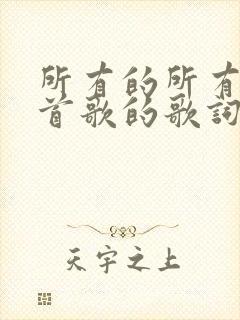 所有的所有
首歌的歌词
天宇之上